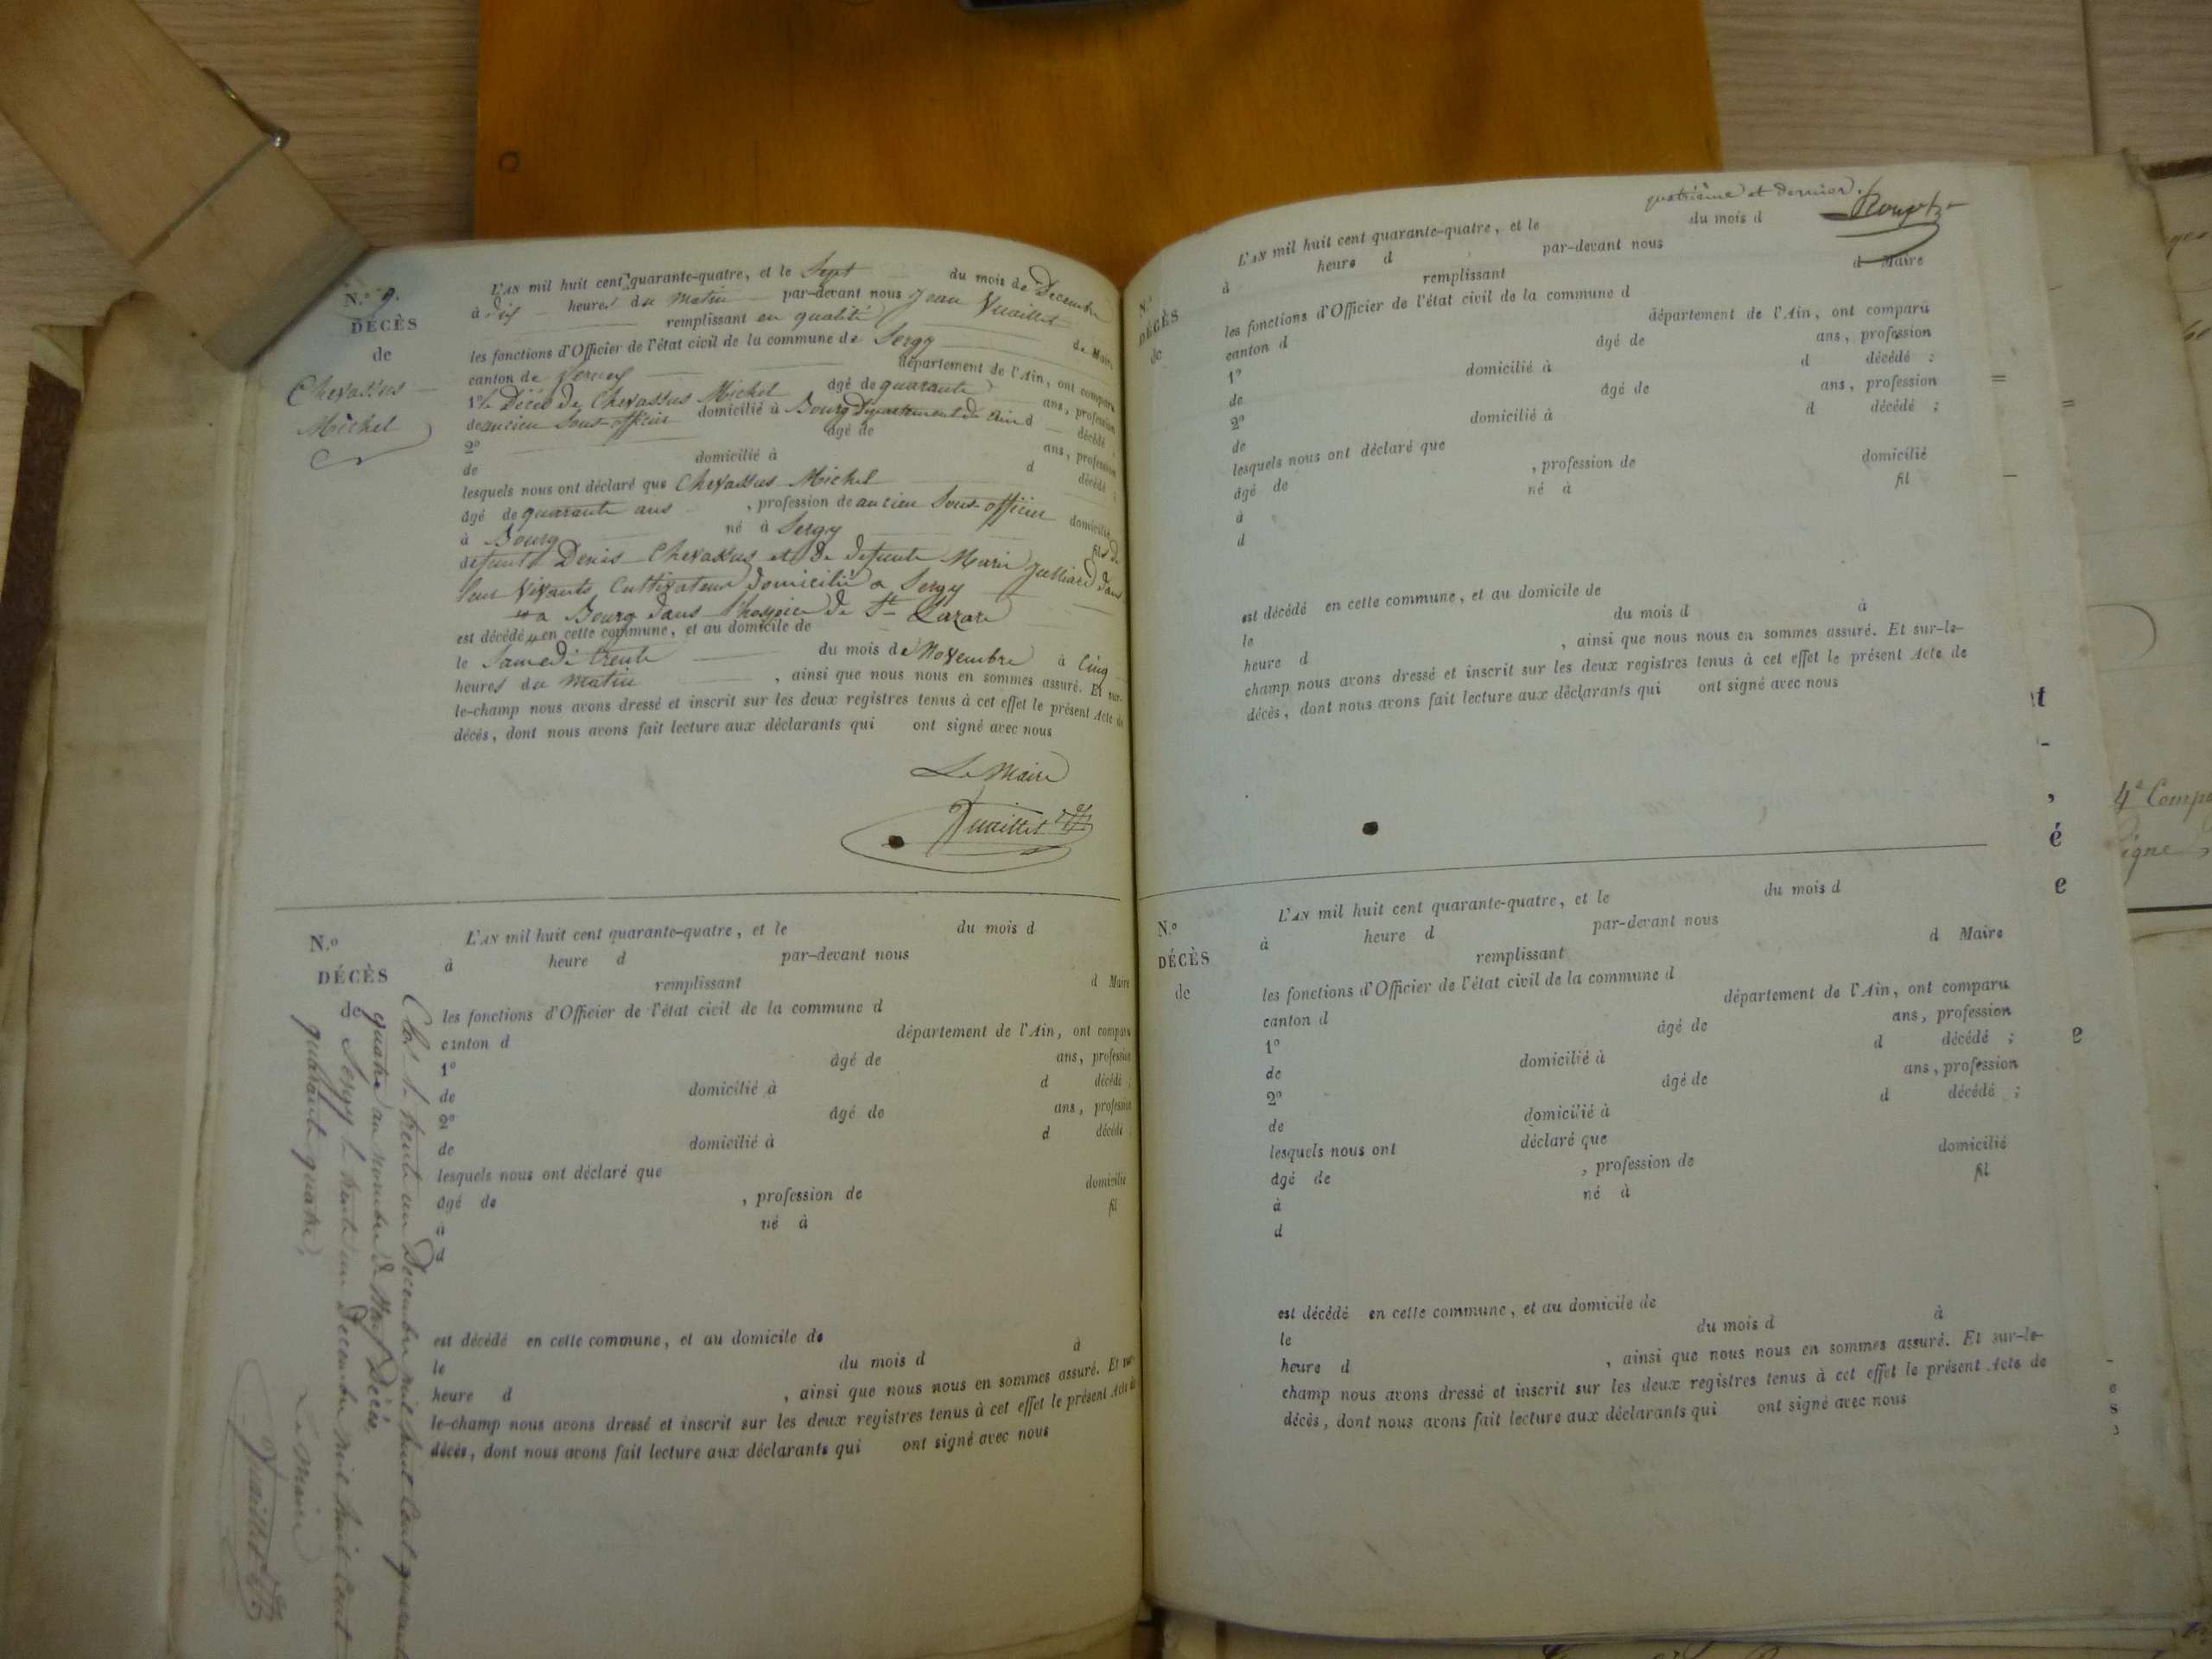 N.º 9.
DÉCÈS
de
Chevassus
Michel
L'AN mil huit cent quarante-quatre, et le Sept du mois de Decembre
à dix heures du matin par-devant nous Jean Vuaillet
remplissant en qualité de Maire
les fonctions d'Officier de l'état civil de la commune de Sergy
canton de département de l'Ain, ont comparu
1º Décès de Chevassus Michel âgé de quarante ans, profession
de ancien Sous-officier domicilié à Bourg Département de Ain d décédé
2º âgé de ans, profession
de domicilié à d décédé ;
lesquels nous ont déclaré que Chevassus Michel
âgé de quarante ans , profession de ancien Sous-officier domicilié
à Bourg né à Sergy fils de
defunt Denis Chevassus et de defunte Marie Julliard dans
leur vivants Cultivateur domicilié a Sergy
a Bourg dans l'hospice de St Lazare
est décédé en cette commune, et au domicile de
le Samedi trente du mois de Novembre à Cinq
heures du matin , ainsi que nous nous en sommes assuré. Et sur-
le-champ nous avons dressé et inscrit sur les deux registres tenus à cet effet le présent Acte de
décès, dont nous avons fait lecture aux déclarants qui ont signé avec nous
Le Maire
Vuaillet
N.º
DÉCÈS
de
L'AN mil huit cent quarante-quatre, et le du mois d
à heure d par-devant nous
remplissant d Maire
les fonctions d'Officier de l'état civil de la commune d
canton d département de l'Ain, ont comparu
1º âgé de ans, profession
de domicilié à d décédé ;
2º âgé de ans, profession
de domicilié à d décédé
lesquels nous ont déclaré que
âgé de , profession de domicilié
à né à fil
d
est décédé en cette commune, et au domicile de
le du mois d à
heure d , ainsi que nous nous en sommes assuré. Et sur-
le-champ nous avons dressé et inscrit sur les deux registres tenus à cet effet le présent Acte de
décès, dont nous avons fait lecture aux déclarants qui ont signé avec nous
Clos le trente un Decembre mil huit Cent quarante
quatre au nombre de Neuf Décès.
Sergy le trente un Decembre mil huit Cent
quarante quatre,
Le Maire
Vuaillet
quatrième et dernier.
Rouph
N.º
DÉCÈS
de
L'AN mil huit cent quarante-quatre, et le du mois d
à heure d par-devant nous
remplissant d Maire
les fonctions d'Officier de l'état civil de la commune d
canton d département de l'Ain, ont comparu
1º âgé de ans, profession
de domicilié à d décédé ;
2º âgé de ans, profession
de domicilié à d décédé ;
lesquels nous ont déclaré que
âgé de , profession de domicilié
à né à fil
d
est décédé en cette commune, et au domicile de
le du mois d à
heure d , ainsi que nous nous en sommes assuré. Et sur-le-
champ nous avons dressé et inscrit sur les deux registres tenus à cet effet le présent Acte de
décès, dont nous avons fait lecture aux déclarants qui ont signé avec nous
N.º
DÉCÈS
de
L'AN mil huit cent quarante-quatre, et le du mois d
à heure d par-devant nous
remplissant d Maire
les fonctions d'Officier de l'état civil de la commune d
canton d département de l'Ain, ont comparu
1º âgé de ans, profession
de domicilié à d décédé ;
2º âgé de ans, profession
de domicilié à d décédé ;
lesquels nous ont déclaré que
âgé de , profession de domicilié
à né à fil
d
est décédé en cette commune, et au domicile de
le du mois d à
heure d , ainsi que nous nous en sommes assuré. Et sur-le-
champ nous avons dressé et inscrit sur les deux registres tenus à cet effet le présent Acte de
décès, dont nous avons fait lecture aux déclarants qui ont signé avec nous